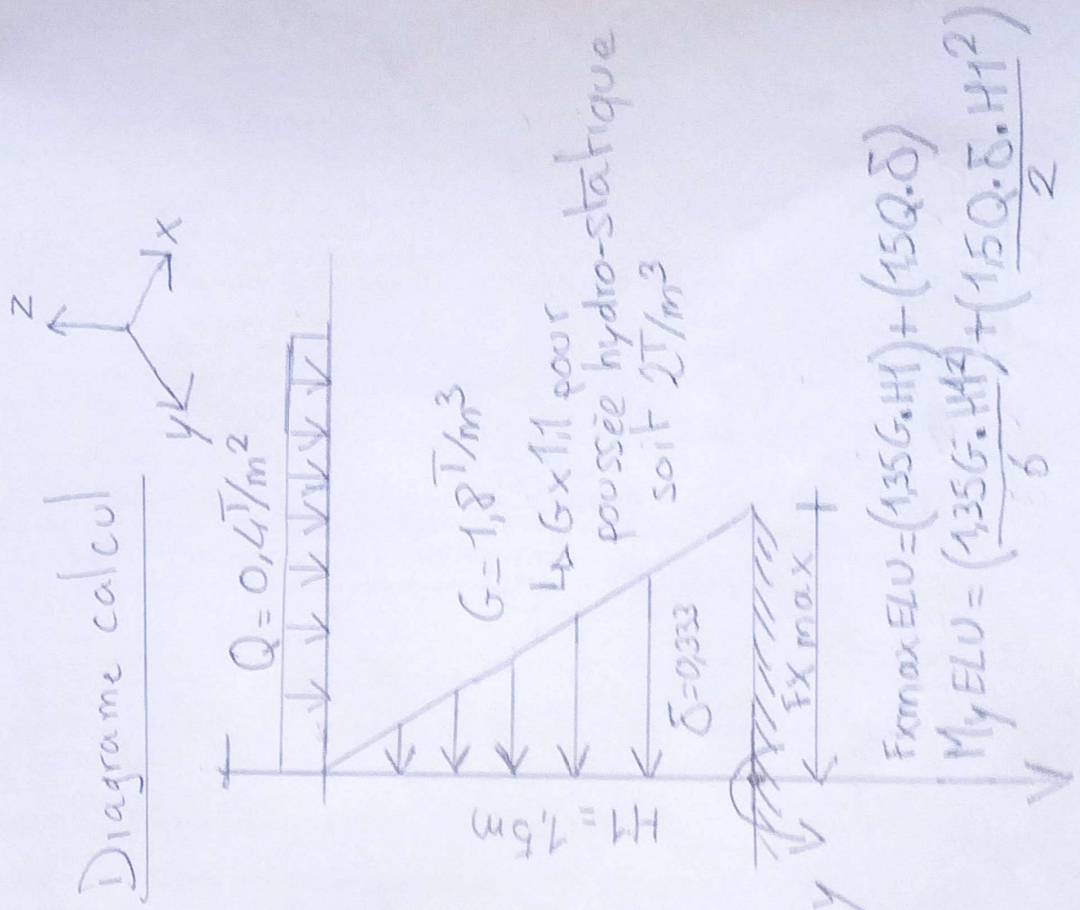 Diagrame calcul
z
x
y
Q = 0,4T/m²
G = 1,8T/m³
↳ G x 1,1 pour
poussée hydro-statique
soit 2T/m³
H1 = 1,5m
δ=0,333
Fx max
y
FxmaxELU=(1,35G.H1)+(1,5Q.δ)
MyELU = (1,35G.H1²)/6+(1,5Q.δ.H1²)/2